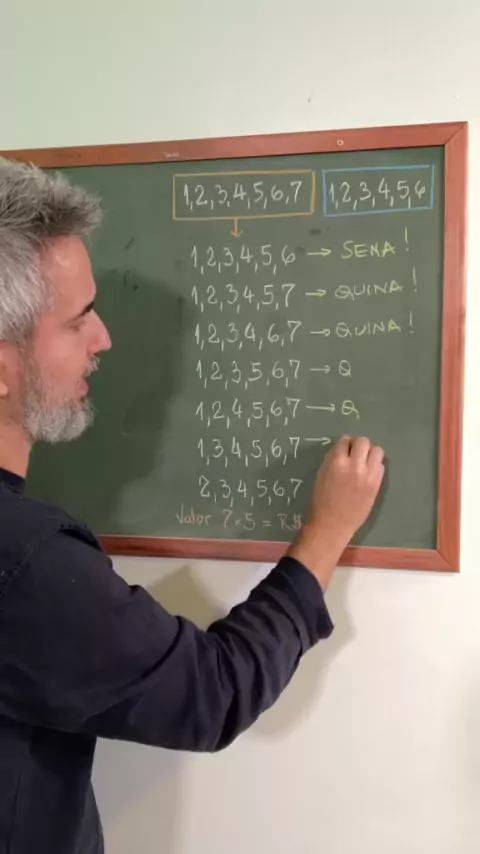 1,2,3,4,5,6,7 1,2,3,4,5,6
1,2,3,4,5,6 → SENA!
1,2,3,4,5,7 → QUINA!
1,2,3,4,6,7 → QUINA!
1,2,3,5,6,7 → Q
1,2,4,5,6,7 → Q
1,3,4,5,6,7 →
2,3,4,5,6,7
Valor 7×5 = R$